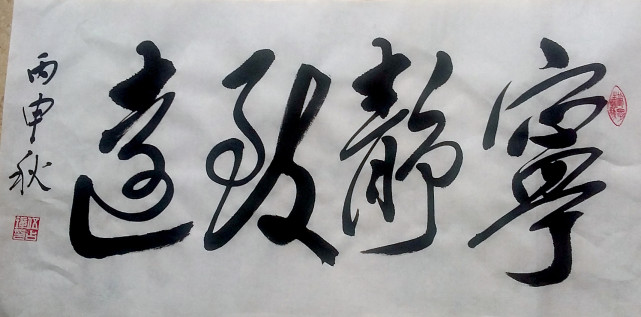 寧靜致遠
丙申秋